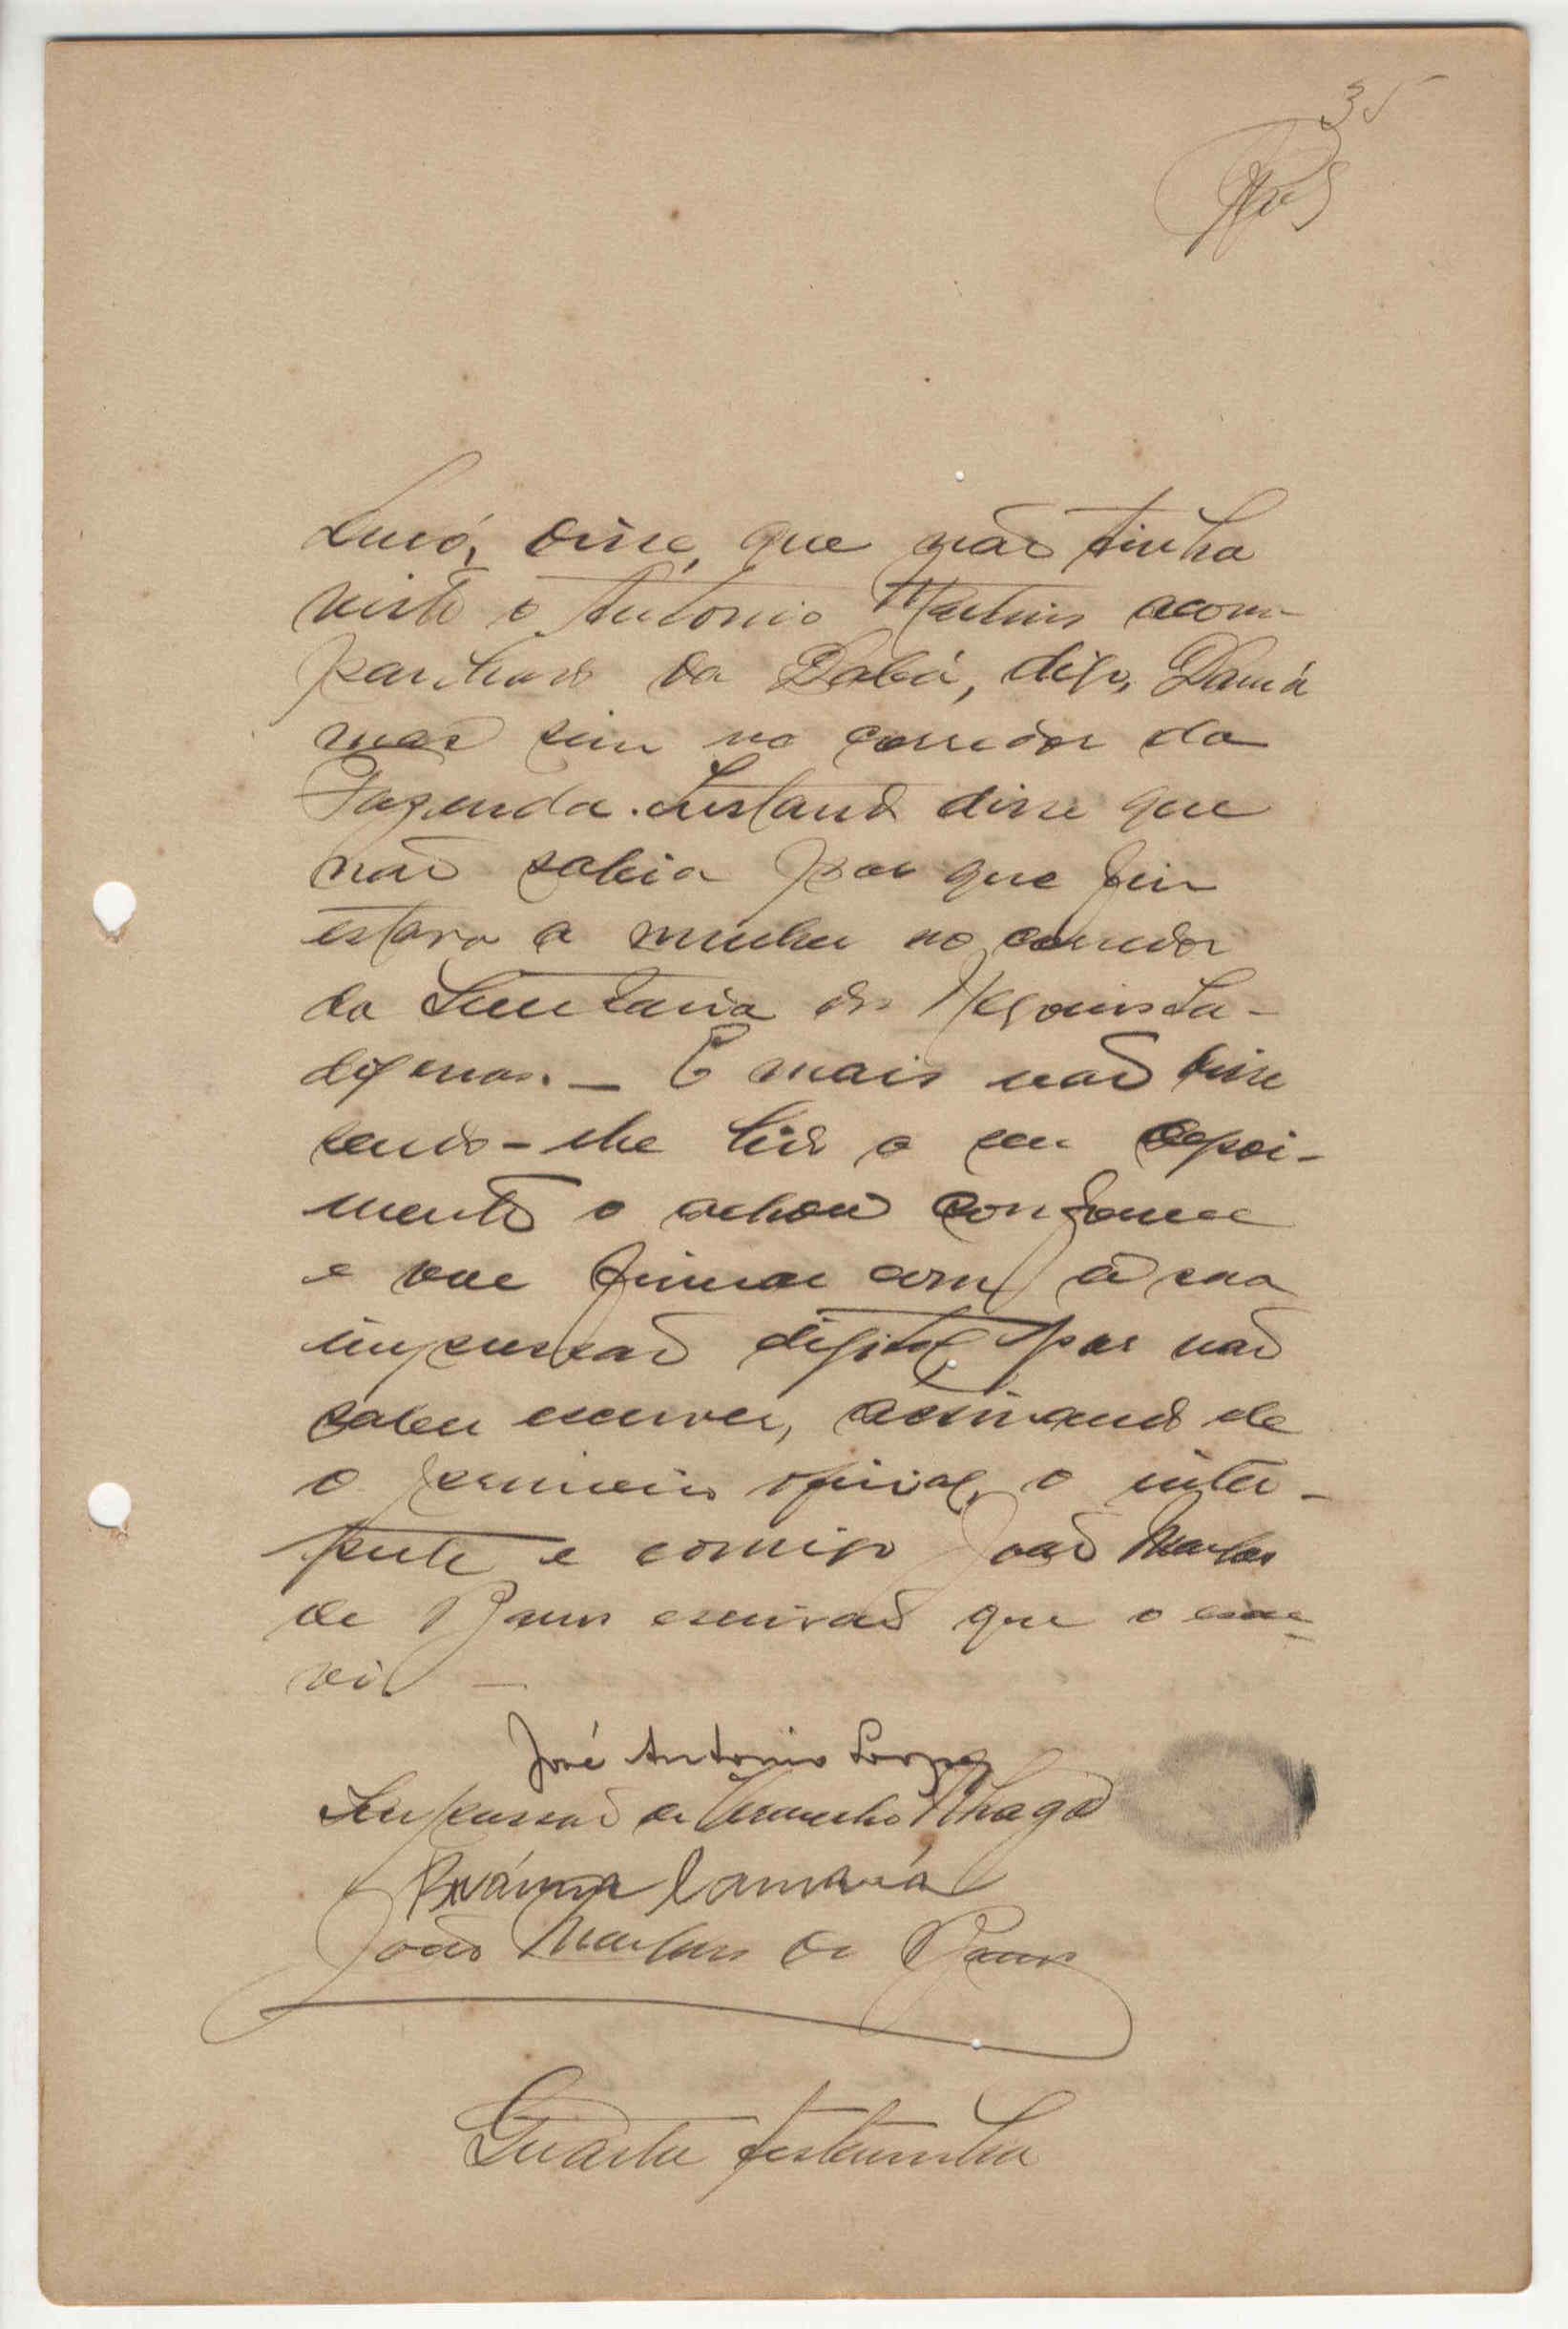 35
Lucó, disse, que não tinha
visto o Antonio Martins acom-
panhado da Babá, digo, Damá
mas sim no corredor da
Fazenda. Instand disse que
não sabia por que fim
estava a mulher no corredor
da Secretaria dos Negocios In-
digenas. — E mais não disse
sendo-lhe lido o seu depoi-
mento o achou conforme
e vae firmar com a sua
impressão digital por não
saber escrever, assinando de
o primeiro oficial, o inter-
prete e comigo João Martins
de Barros escrivão que o escre-
vi —
José Antonio Lopes
Impressão de Thiago
Camará
João Martins de Barros
Quarta testemunha